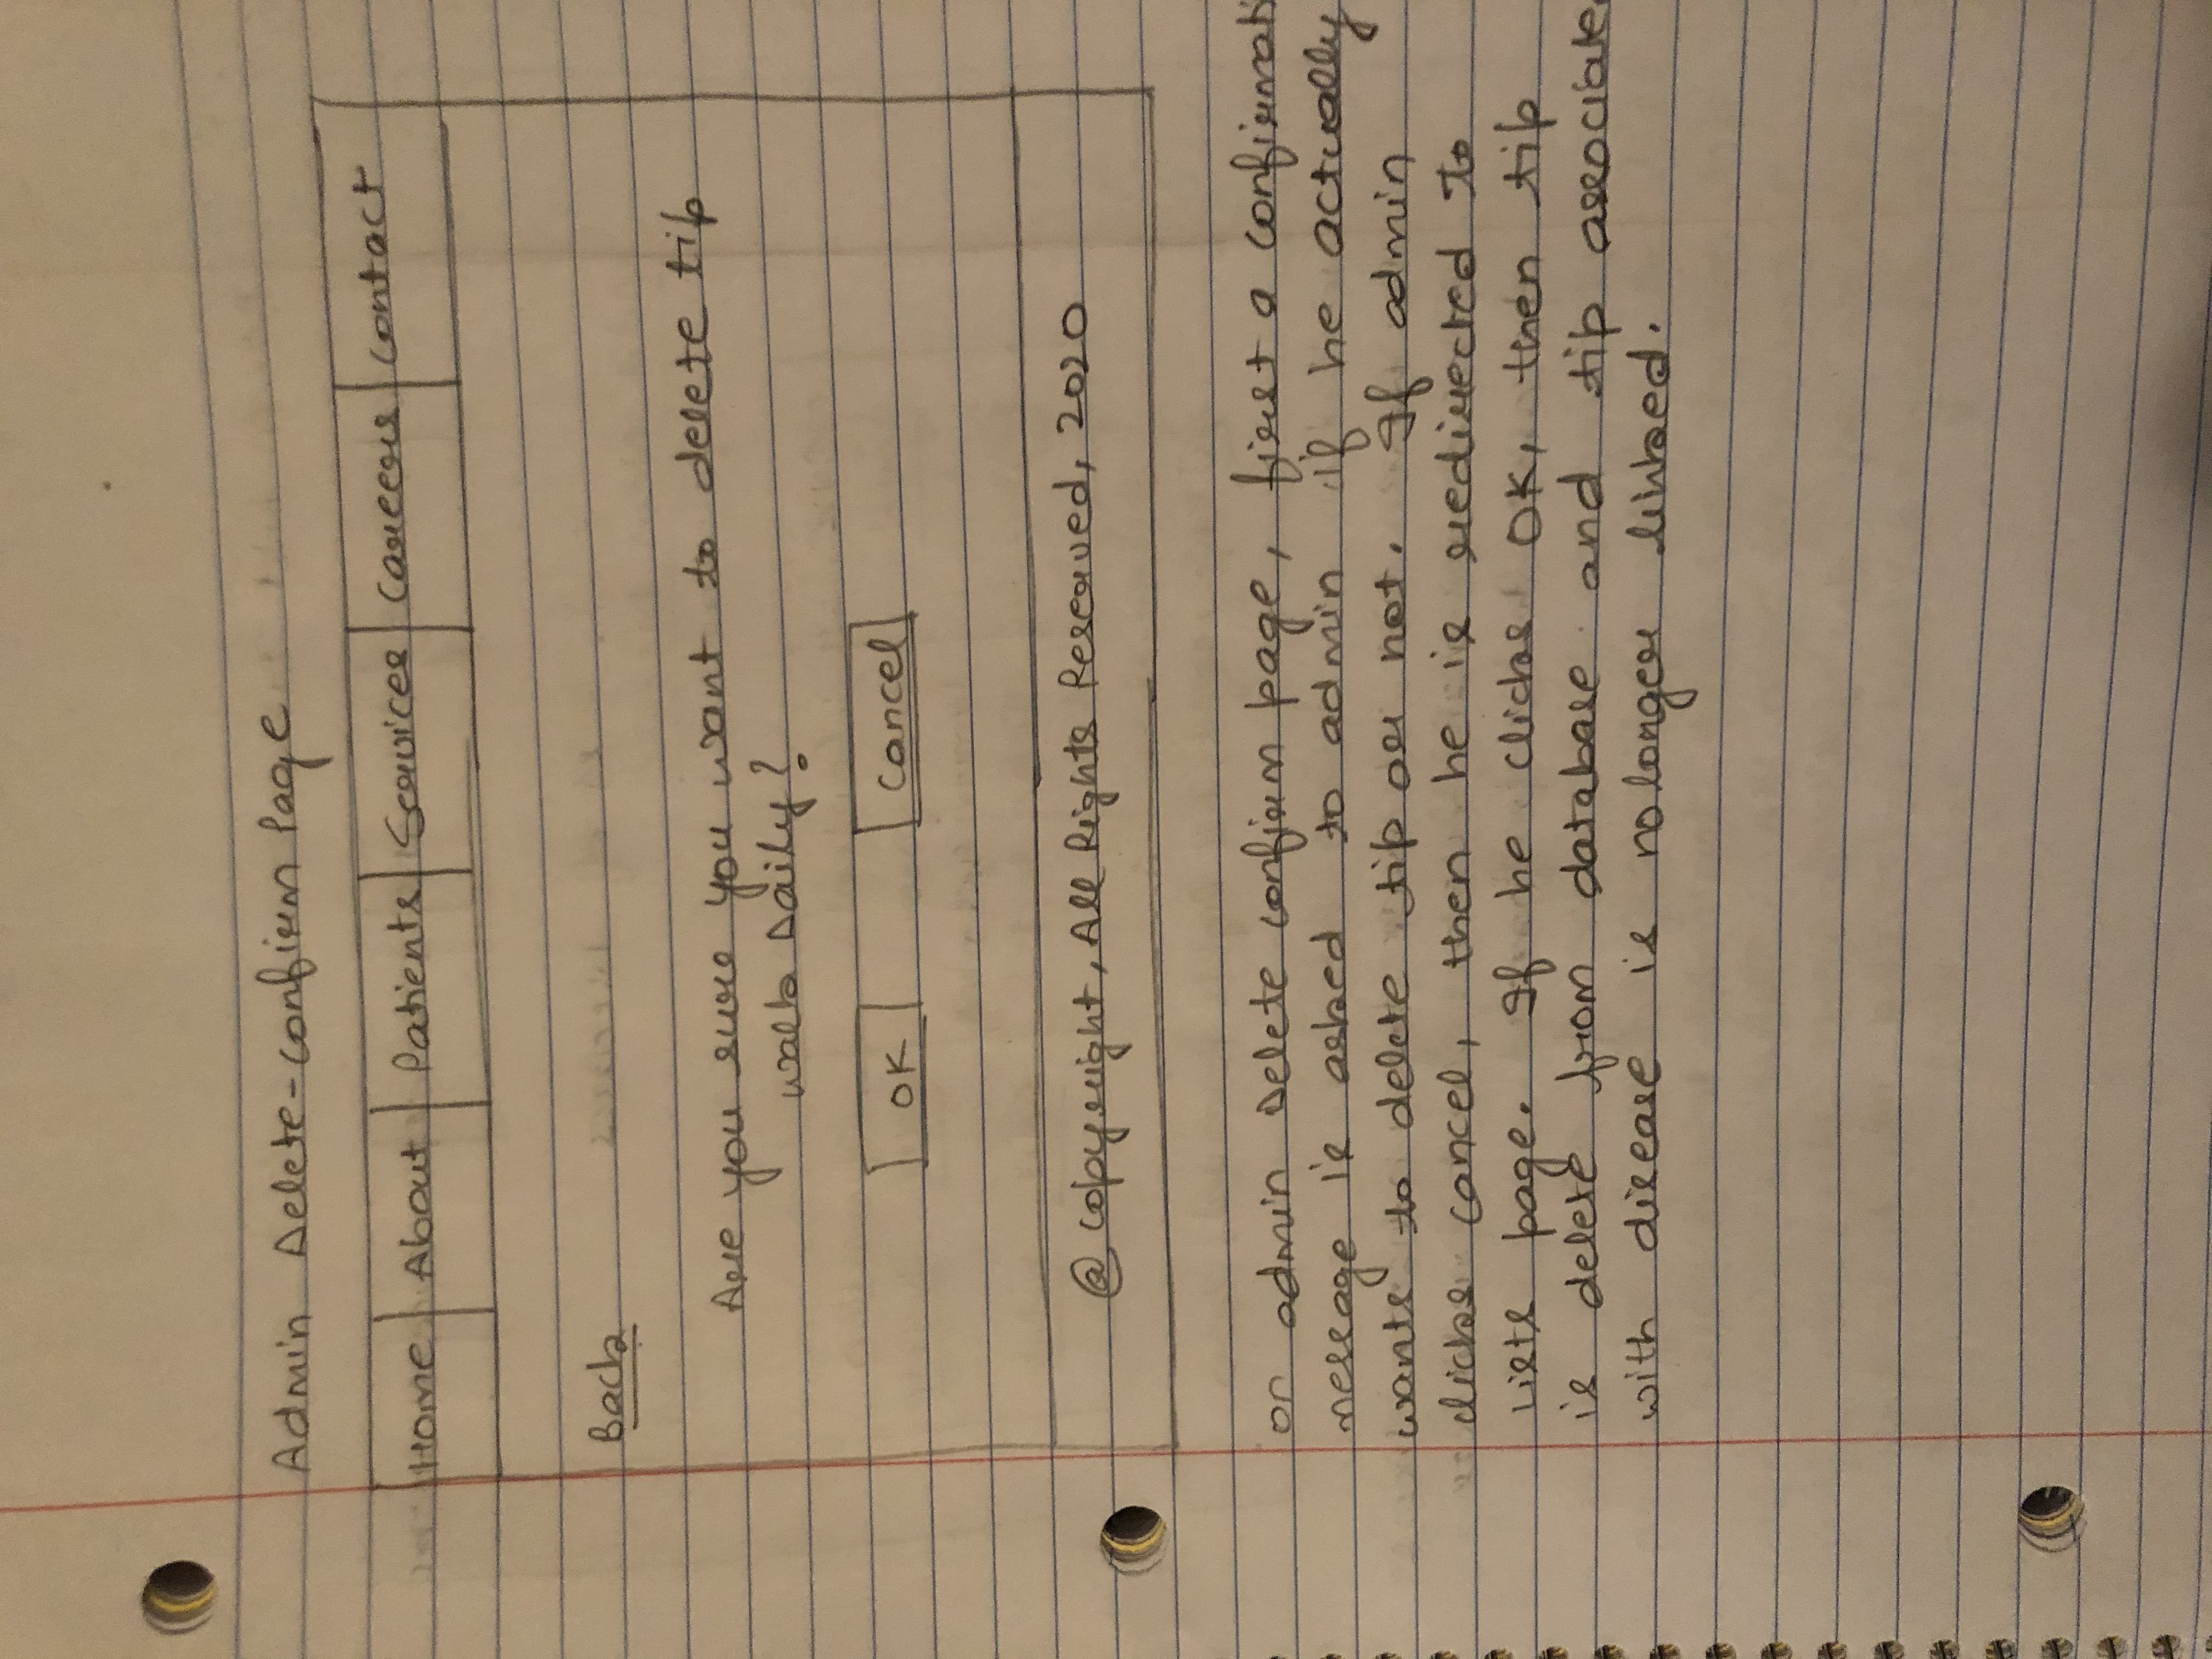 Admin Delete-confirm Page
Home About Patients Services Careers Contact
Back
Are you sure you want to delete tip
walk Daily?
OK Cancel
@ copyright, All Rights Reserved, 2020
on admin Delete confirm page, first a confirmati
message is asked to admin if he actually
wants to delete tip or not. If admin
clicks cancel, then he is redirected to
Lists page. If he clicks OK, then tip
is delete from database and tip associate
with disease is no longer linked.